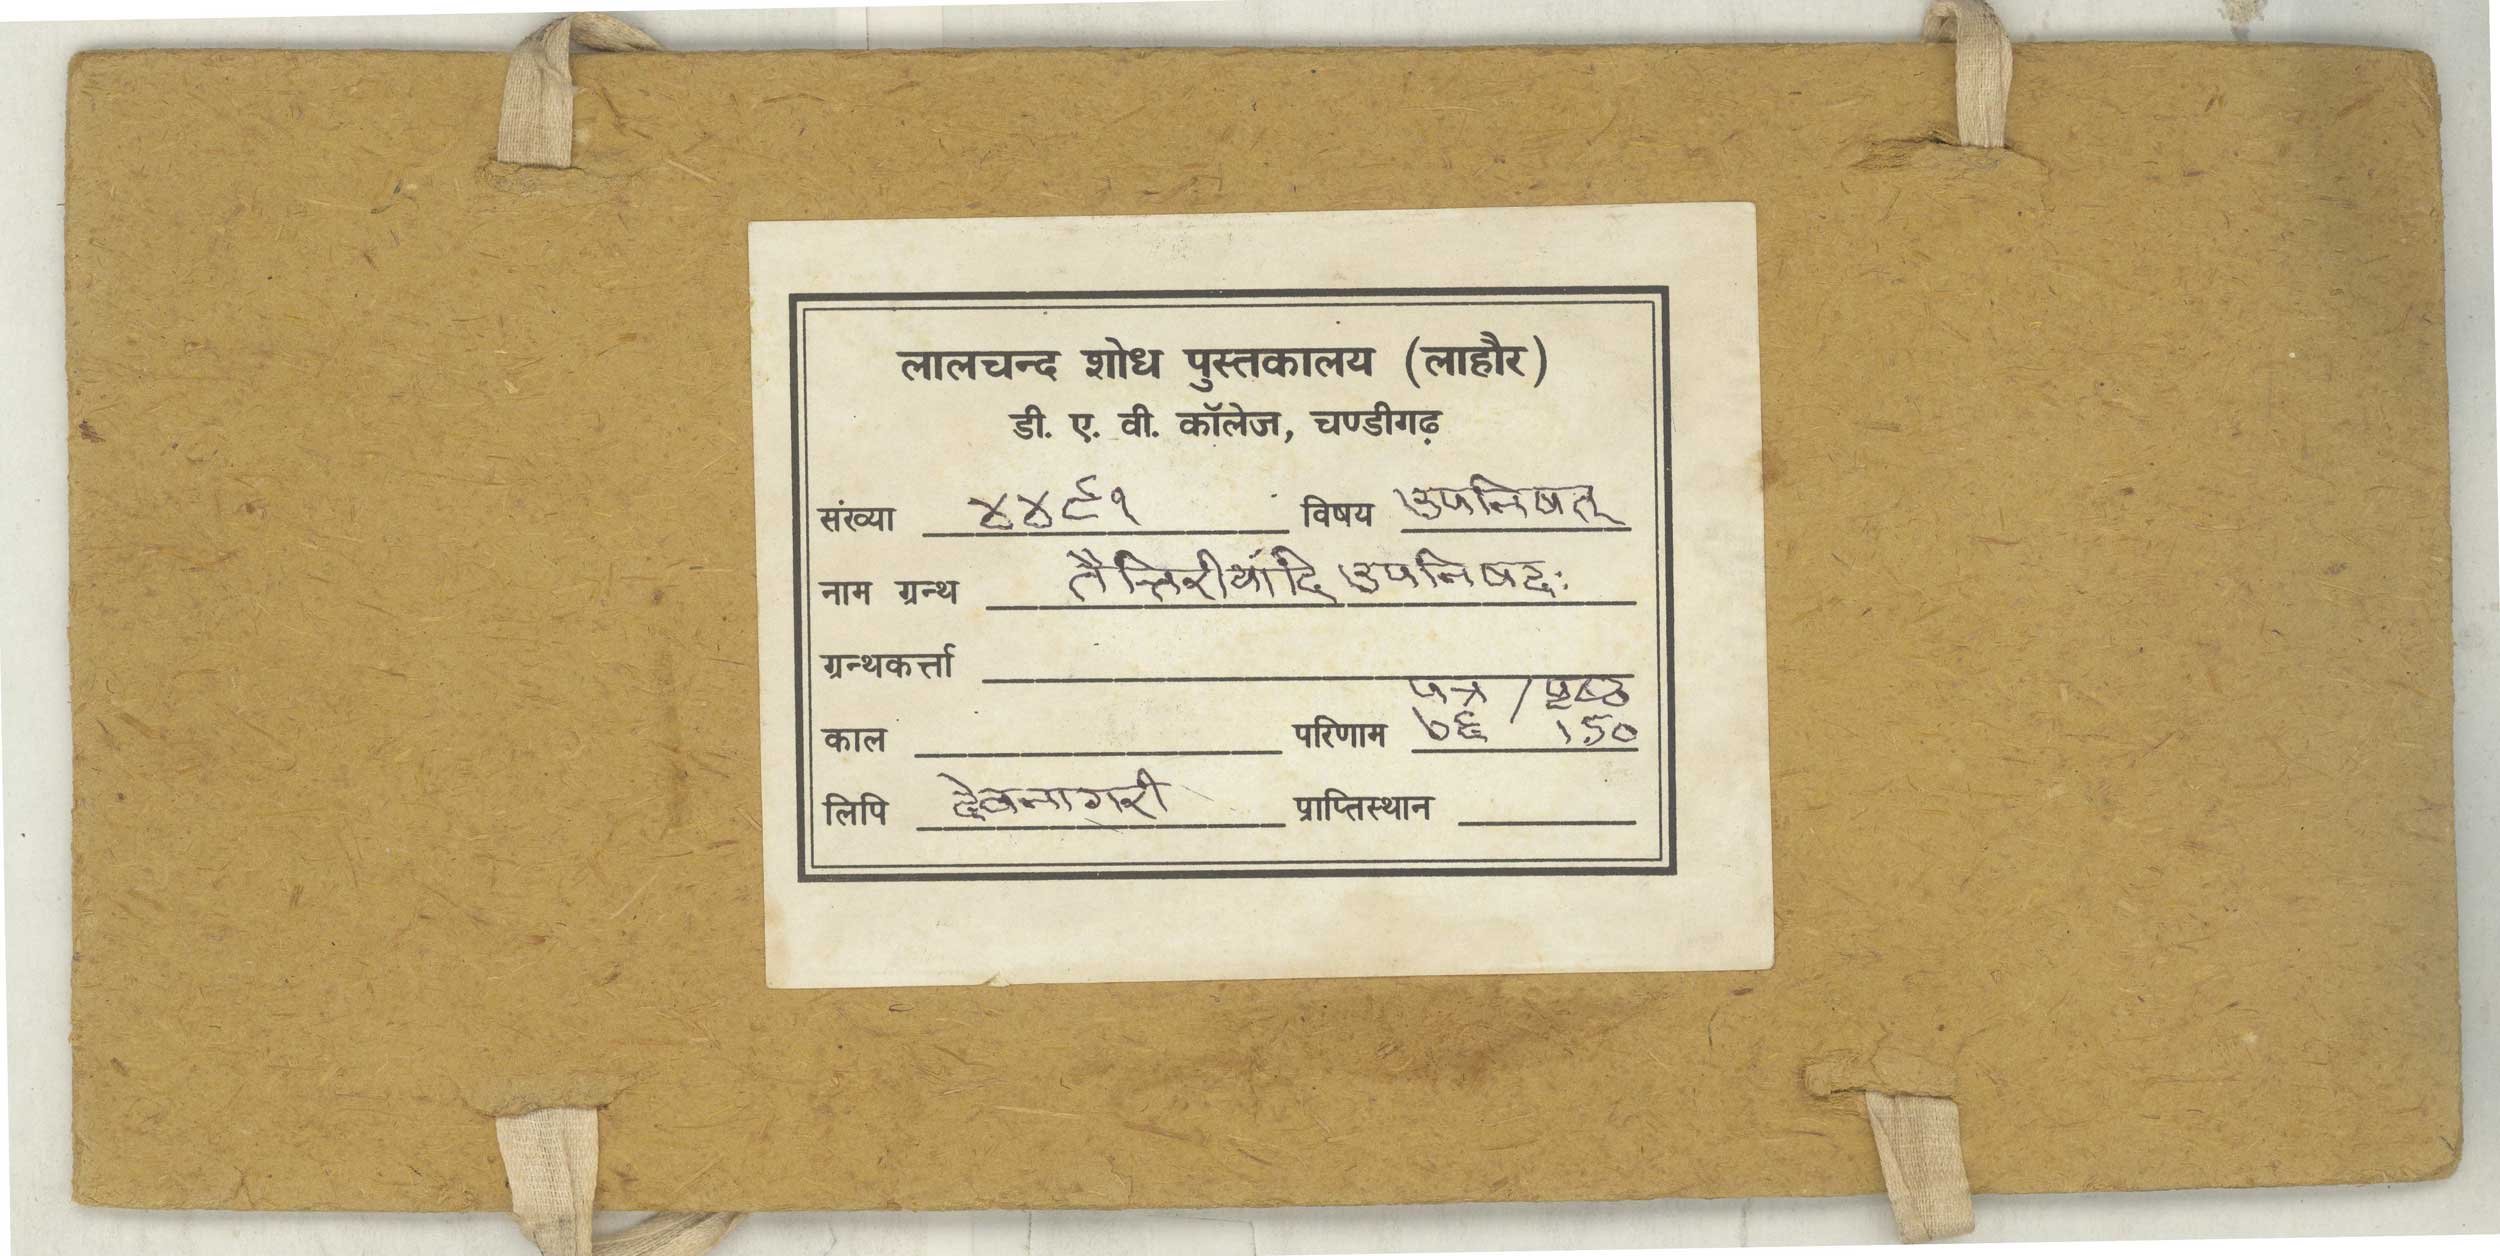 लालचन्द शोध पुस्तकालय (लाहौर)
डी. ए. वी. कॉलेज, चण्डीगढ़
संख्या ४४९१ विषय उपनिषत्
नाम ग्रन्थ तैत्तिरीयादि उपनिषद:
ग्रन्थकर्त्ता
पत्र / पृष्ठ
काल परिणाम ७६ १५०
लिपि देवनागरी प्राप्तिस्थान